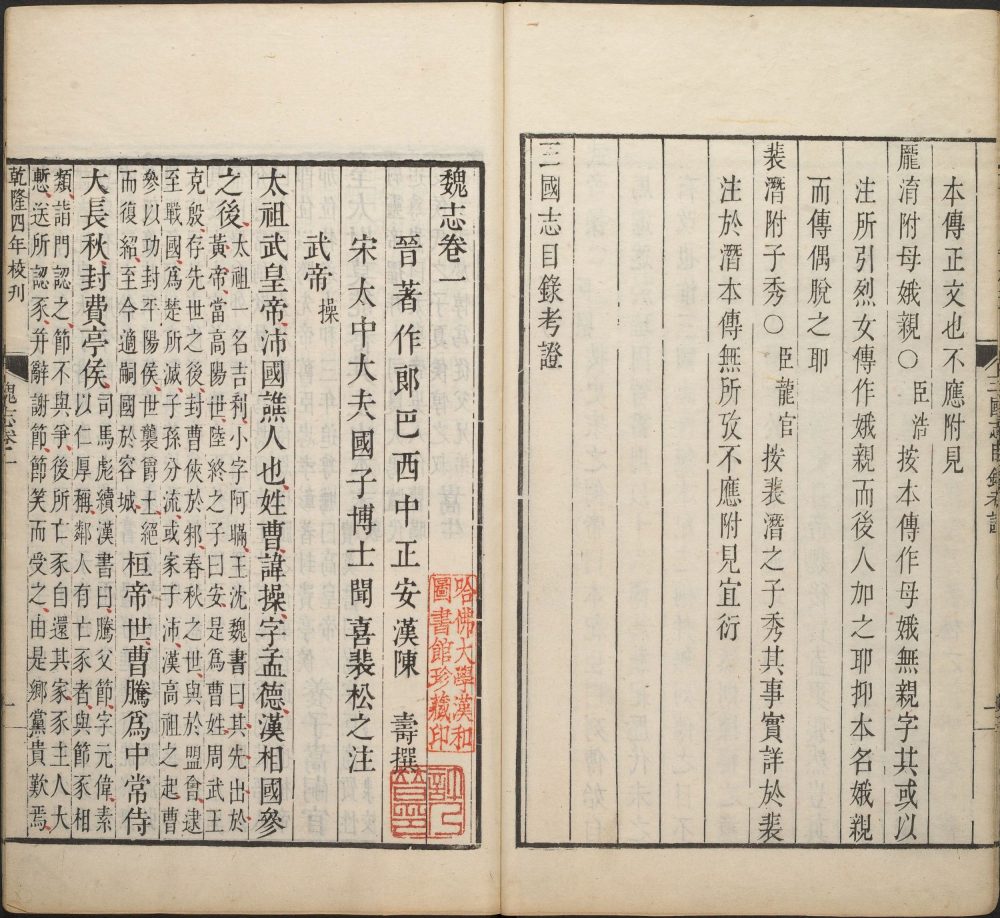 本傳正文也不應附見
龐淯附母娥親○臣浩按本傳作母娥無親字其或以
注所引烈女傳作娥親而後人加之耶抑本名娥親
而傳偶脫之耶
裴潛附子秀○臣龍官按裴潛之子秀其事實詳於裴
注於潛本傳無所攷不應附見宜衍
三國志目錄考證
魏志卷一
晉著作郎巴西中正安漢陳壽撰
宋太中大夫國子博士聞喜裴松之注
武帝操
太祖武皇帝沛國譙人也姓曹諱操字孟德漢相國參
之後
太祖一名吉利小字阿瞞王沈魏書曰其先出於
黃帝當高陽世陸終之子曰安是爲曹姓周武王
克殷存先世之後封曹俠於邾春秋之世與於盟會逮
至戰國爲楚所滅子孫分流或家于沛漢高祖之起曹
參以功封平陽侯世襲爵土絕
而復紹至今適嗣國於容城
桓帝世曹騰爲中常侍
大長秋封費亭侯
司馬彪續漢書曰騰父節字元偉素
以仁厚稱鄰人有亡豕者與節豕相
類詣門認之節不與爭後所亡豕自還其家豕主人大
慙送所認豕并辭謝節節笑而受之由是鄉黨貴歎焉
乾隆四年校刊
魏志卷一
一
哈佛大學漢和
圖書館珍藏印